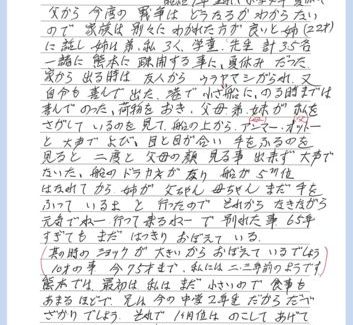 父から今度の戦争はどうなるかわからない
ので家族は別々にわかれた方が良いと姉(22才)
に話し姉は弟、私3人、学童、先生 計35名
一緒に熊本に疎開する事に、夏休みだった
家から出る時は友人からウラヤマシがられ、又
自分も喜んで出た、港で小さ船に、のる時までは
喜んでのった、荷物をおき、父母弟、妹が私を
さがしているのを見て、船の上から、アンマー、オットー
と大声でよび、目と目が合い手をふるのを
見ると二度と父母の顔見る事出来ず大声で
ないた、船のドラがなり船が5m位
はなれてから姉が父ちゃん母ちゃんまだ手を
ふっているよと行ったのでそれからなきながら
元気でねー行って来るねーで別れた事65年
すぎてもまだはっきりおぼえている
(其の時のショックが大きいからおぼえているでしょう
10才の事今75才まで、私には二、三年前のようです)
熊本では、最初は私はまだ小さいので食事も
あまるほどで、兄は今の中学2年生だからたべ
ざかりでしょう、それで1ヶ月位はのこしてあげて